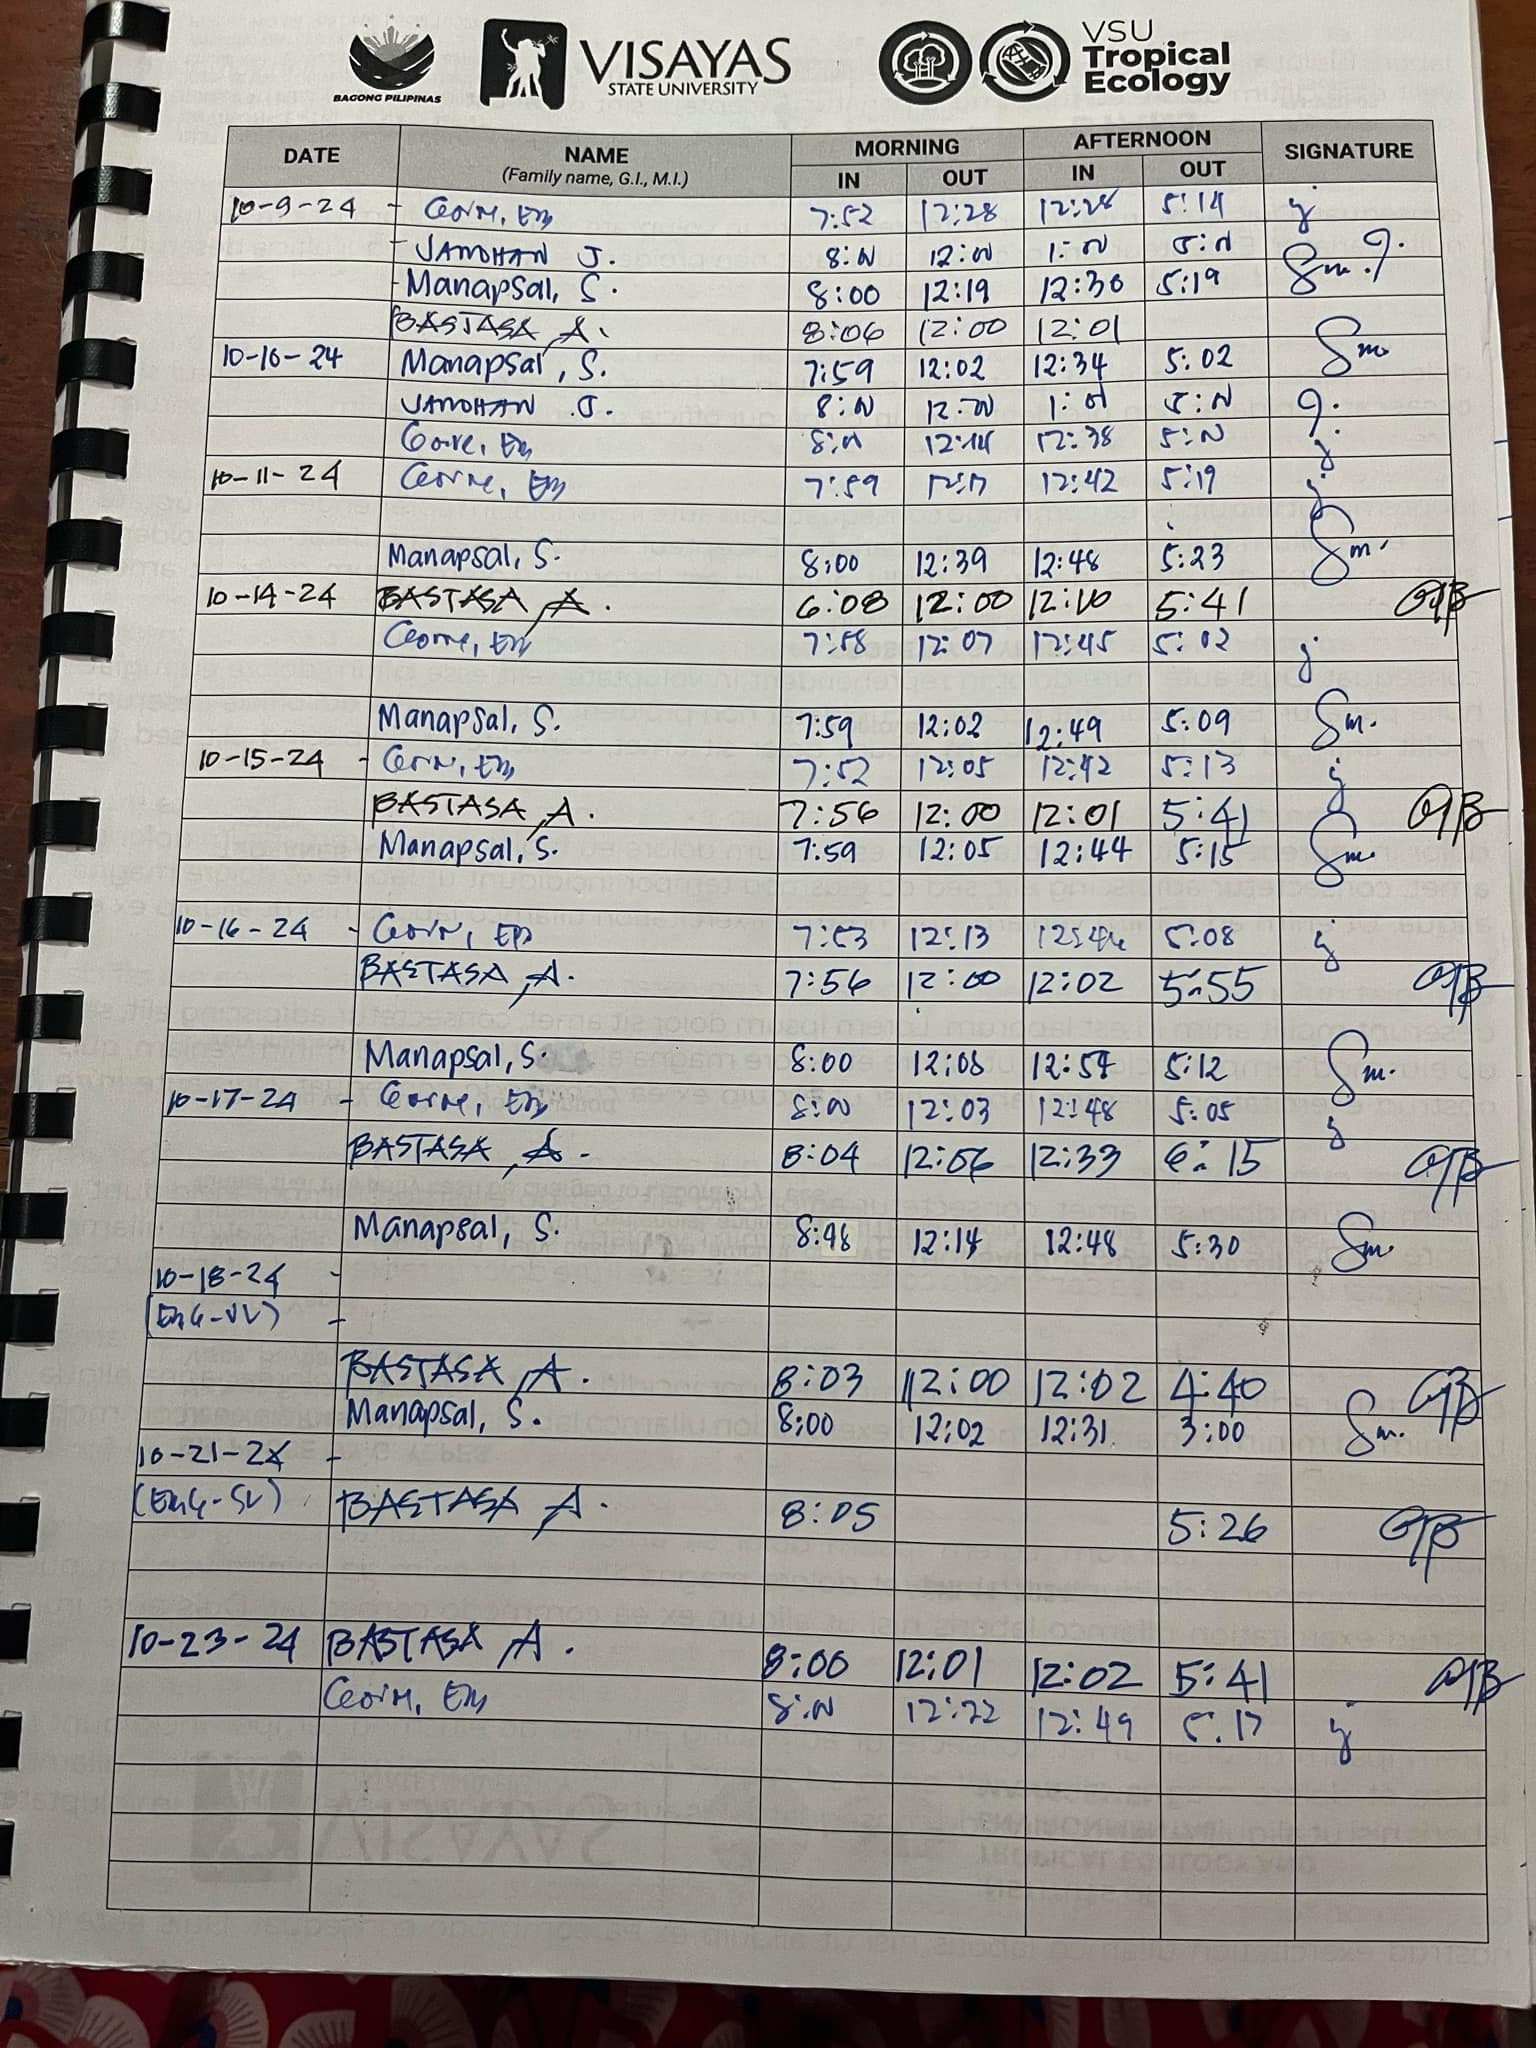 BAGONG PILIPINAS
VISAYAS
STATE UNIVERSITY
VSU
Tropical
Ecology
DATE NAME MORNING AFTERNOON SIGNATURE
(Family name, G.I., M.I.) IN OUT IN OUT
10-9-24 - 7:52 12:28 12:28 5:14
- JANDHAN J. 8:N 12:00 1:00 5:N
- Manapsal, S. 8:00 12:19 12:30 5:19 Sm.
BASTASA, A. 8:06 12:00 12:01
10-10-24 Manapsal, S. 7:59 12:02 12:34 5:02 Sm.
JANDHAN J. 8:N 12:N 1:N 5:N
8:N 12:14 12:38 5:N
10-11-24 7:59 12:42 5:19
Manapsal, S. 8:00 12:39 12:48 5:23 Sm.
10-14-24 BASTASA, A. 6:08 12:00 12:10 5:41
7:58 12:07 12:45 5:02
Manapsal, S. 7:59 12:02 12:49 5:09 Sm.
10-15-24 - 7:52 12:05 12:42 5:13
BASTASA, A. 7:56 12:00 12:01 5:41
Manapsal, S. 7:59 12:05 12:44 5:15 Sm.
10-16-24 - 7:53 12:13 12:46 5:08
BASTASA, A. 7:56 12:00 12:02 5:55
Manapsal, S. 8:00 12:08 12:54 5:12 Sm.
10-17-24 - 8:N 12:03 12:48 5:05
BASTASA, A. 8:04 12:06 12:33 6:15
Manapsal, S. 8:48 12:14 12:48 5:30 Sm.
10-18-24 -
-
BASTASA, A. 8:03 12:00 12:02 4:40
Manapsal, S. 8:00 12:02 12:31 3:00 Sm.
10-21-24 -
BASTASA, A. 8:05 5:26
10-23-24 BASTASA, A. 8:00 12:01 12:02 5:41
8:N 12:22 12:49 5.17